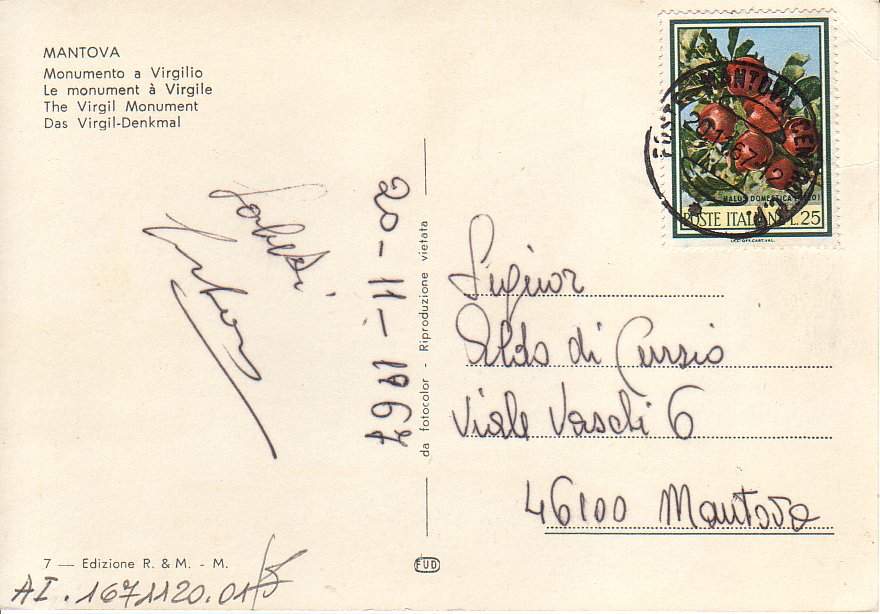 MANTOVA
Monumento a Virgilio
Le monument à Virgile
The Virgil Monument
Das Virgil-Denkmal
MALUS DOMESTICA
POSTE ITALIANE L.25
MANTOVA
20-11-1967
da fotocolor - Riproduzione vietata
Signor
Aldo di Curzio
Viale Vaschi 6
46100 Mantova
7 — Edizione R. & M. - M.
FUD
AI.1671120.01